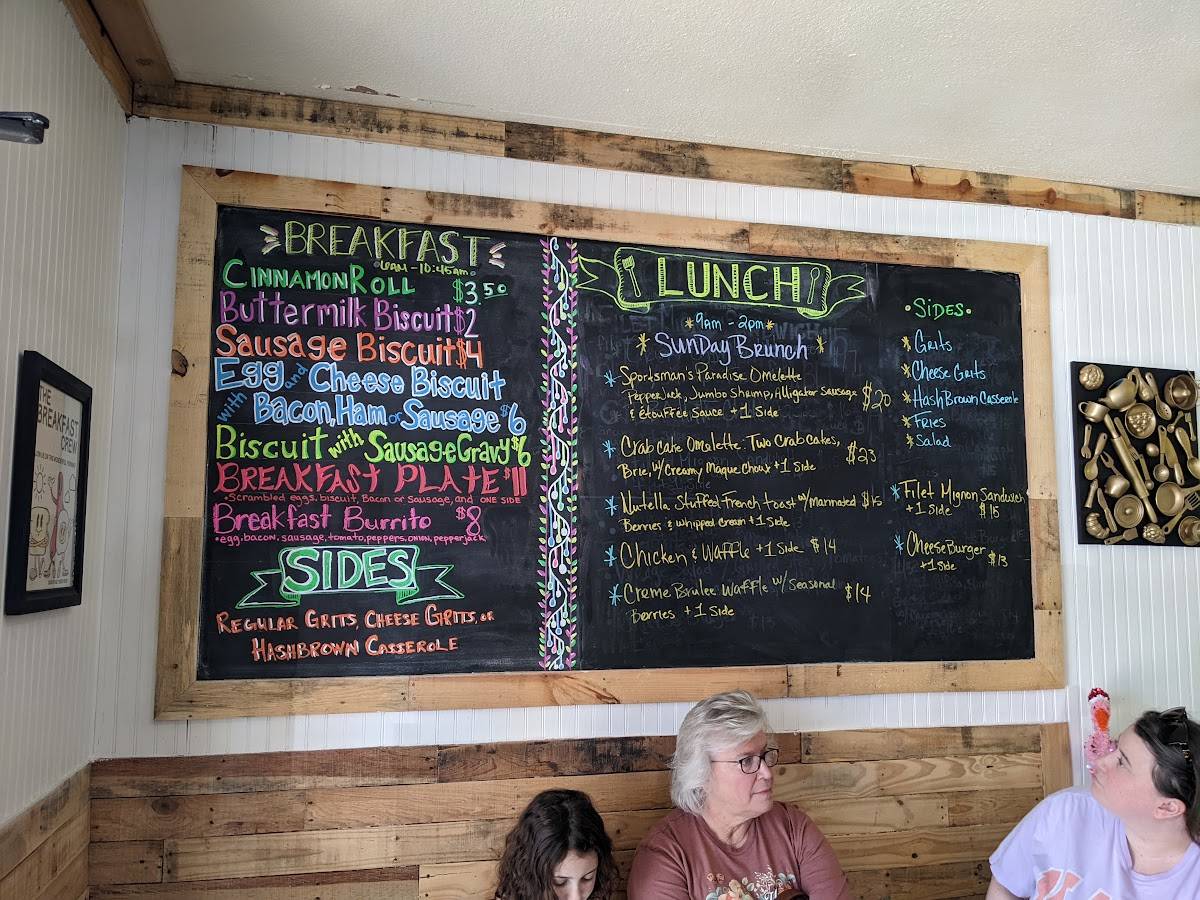 BREAKFAST
6AM-10:45AM
CINNAMON ROLL $3.50
Buttermilk Biscuit $2
Sausage Biscuit $4
Egg and Cheese Biscuit
with Bacon, Ham or Sausage $6
Biscuit with Sausage Gravy $6
BREAKFAST PLATE $11
•Scrambled eggs, biscuit, Bacon or Sausage, and ONE SIDE
Breakfast Burrito $8
•egg, bacon, sausage, tomato, peppers, onion, pepperjack
SIDES
REGULAR GRITS, CHEESE GRITS, OR
HASHBROWN CASSEROLE
LUNCH
9am - 2pm
Sunday Brunch
Sportsman's Paradise Omelette
Pepper Jack, Jumbo Shrimp, Alligator Sausage $20
& étouffée Sauce +1 Side
Crab cake Omelette. Two Crab cakes,
Brie, w/ Creamy Maque Choux +1 Side $23
Nutella Stuffed French toast w/ marinated $15
Berries & whipped cream +1 Side
Chicken & Waffle +1 Side $14
Creme Brulee Waffle w/ Seasonal $14
Berries +1 Side
•SIDES•
Grits
Cheese Grits
HashBrown Casserole
Fries
Salad
Filet Mignon Sandwich
+1 Side $15
Cheese Burger
+1 Side $13
THE
BREAKFAST
CREW